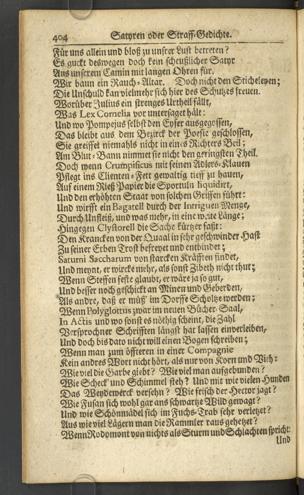 404 Satyren oder Straff-Gedichte.
Für uns allein und bloß zu unser Lust betreten?
Es guckt deswegen doch kein scheußlicher Satyr
Aus unsrem Camin mit langen Ohren für.
Wir baun ein Rauch-Altar. Doch nicht den Sticheleyen;
Die Unschuld kan vielmehr sich hier des Schutzes freuen.
Worüber Julius ein strenges Urtheil fällt,
Was Lex Cornelia vor untersaget hält:
Und wo Pompejus selbst den Eyfer ausgegossen,
Das bleibt aus dem Bezirck der Poesie geschlossen,
Sie greiffet niemahls nicht in eines Richters Beil;
Am Blut-Bann nimmet sie nicht den geringsten Theil.
Doch wenn Crumpificus mit seinen Adlers-Klauen
Pflegt ins Clienten-Fett gewaltig tieff zu hauen,
Auf einem Rieß Papier die Sportuln liquidirt,
Und den erhöhten Staat von solchen Griffen führt:
Und wirfft ein Bagatell durch der Intriguen Menge,
Durch Unfleiß, und was mehr, in eine weite Länge;
Hingegen Clystorell die Sache kürtzer faßt:
Den Krancken von der Quaal in sehr geschwinder Hast
Zu seiner Erben Trost befreyet und entbindet;
Saturni Saccharum von starcken Kräfften findet,
Und meynt, er wircke mehr, als sonst Zibeth nicht thut;
Wenn Steffen feste glaubt, er wäre ja so gut,
Und besser noch geschickt an Minen und Geberden,
Als andre, daß er müß' im Dorffe Scholtze werden;
Wenn Polyglottus zwar im neuen Bücher-Saal,
In Actis und wo sonst es nöthig scheint, die Zahl
Versprochner Schrifften längst hat lassen einverleiben,
Und doch bis dato nicht will einen Bogen schreiben;
Wenn man zum öfftern in einer Compagnie
Kein andres Wort nicht hört, als nur von Korn und Vieh:
Wie viel die Garbe giebt? Wie viel man ausgebunden?
Wie Scheck' und Schimmel steh? Und mit wie vielen Hunden
Das Weydewerck versehn? Wie frisch der Hector jagt?
Wie Fusan sich wohl gar ans schwartze Wild gewagt?
Und wie Schönmädel sich im Fuchs-Trab sehr verletzet?
Aus wie viel Lägern man die Rammler raus gehetzet?
Wenn Rodomont von nichts als Sturm und Schlachten spricht:
Und